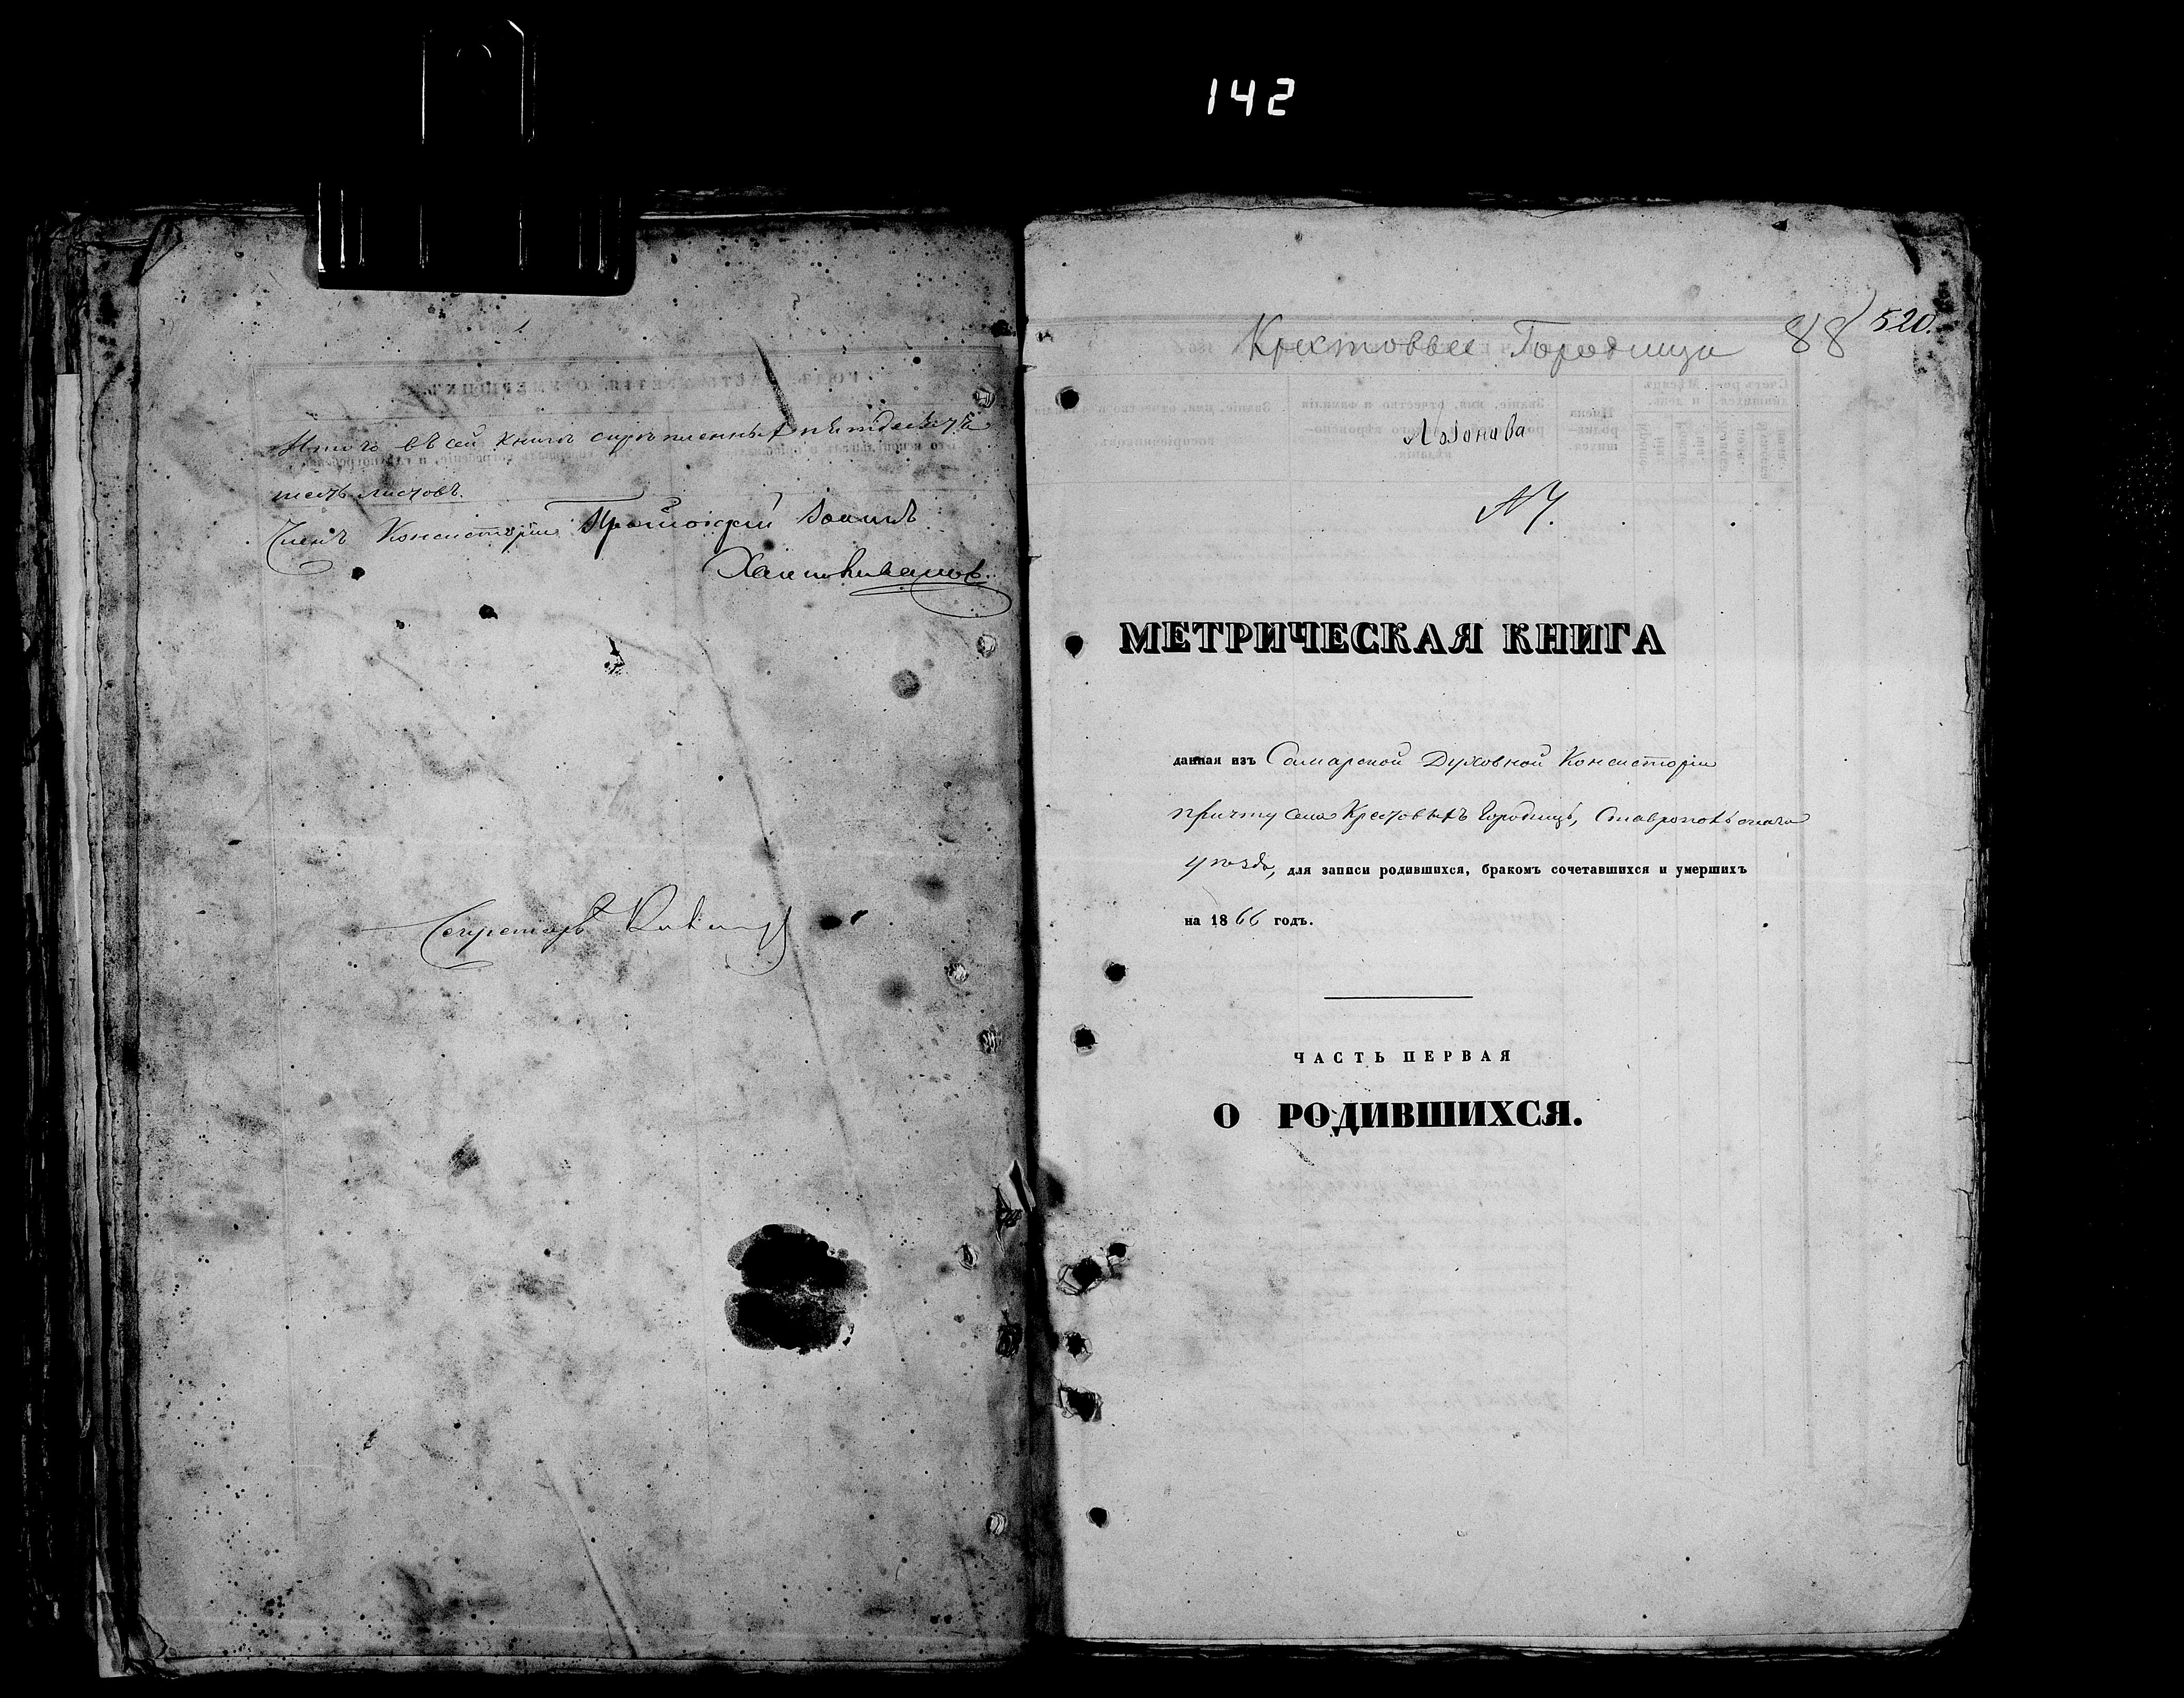 142
Итого въ сей книгѣ скрѣпленныхъ пятьдесятъ
шесть листовъ.
Членъ Консисторіи Протоіерей Іоаннъ
Секретарь
Крестовые Городищи 88 520.
Лозонава
№
МЕТРИЧЕСКАЯ КНИГА
данная изъ Самарской Духовной Консисторіи
причту села Крестовыхъ Городищъ, Ставропольскаго
уѣзда, для записи родившихся, бракомъ сочетавшихся и умершихъ
на 1866 годъ.
ЧАСТЬ ПЕРВАЯ
О РОДИВШИХСЯ.